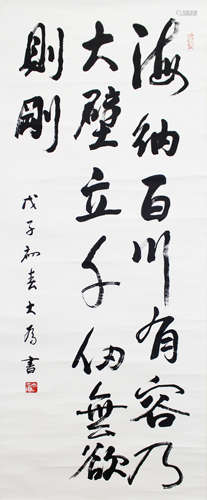 海納百川有容乃
大壁立千仞無欲
則剛
戊子初春大為書